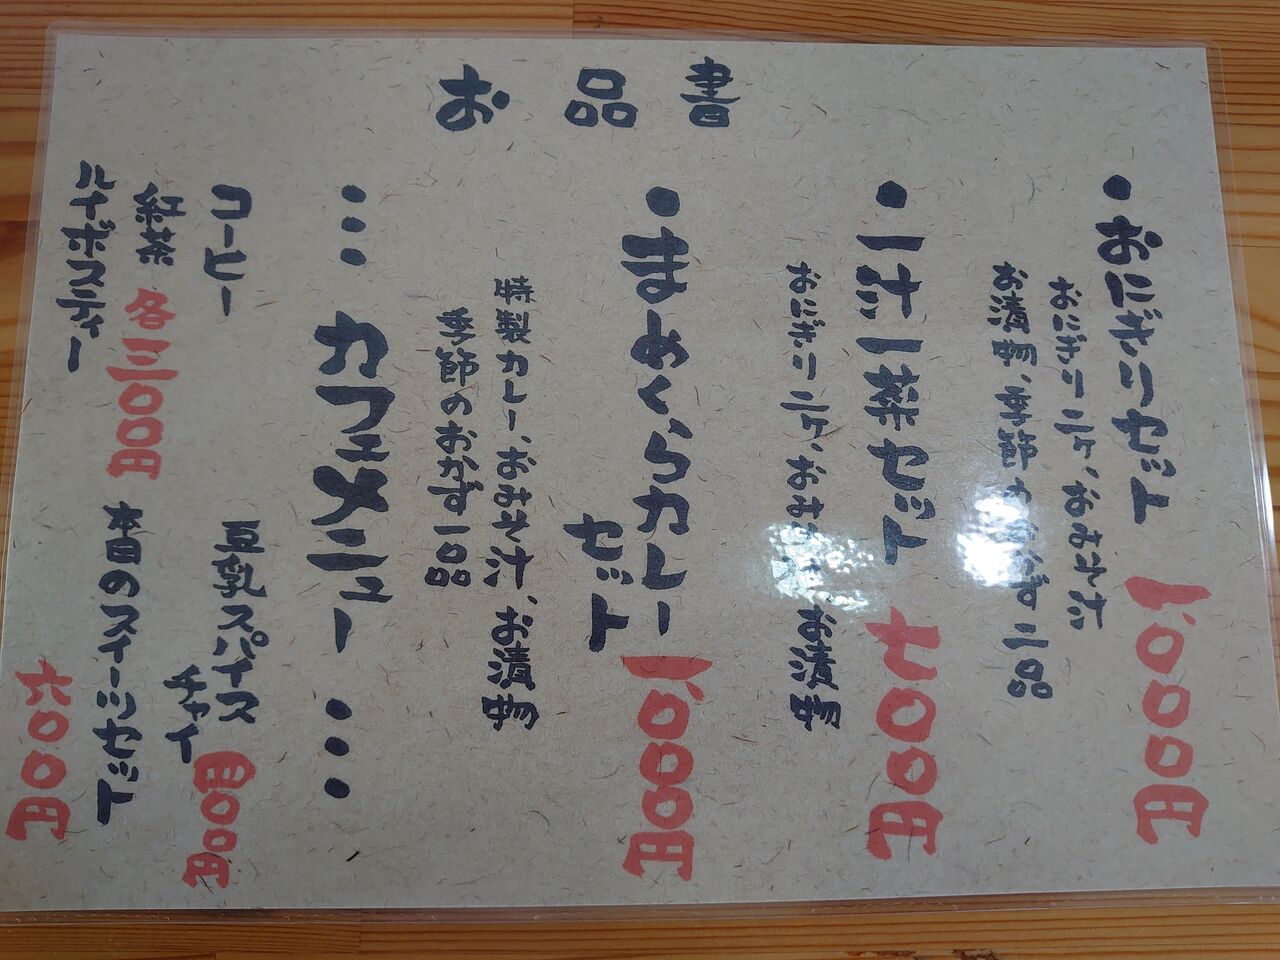 お品書
・おにぎりセット 一、〇〇〇円
おにぎり二ケ、おみそ汁
お漬物、季節のおかず二品
・一汁一菜セット 七〇〇円
おにぎり二ケ、おみそ汁、お漬物
・まめくらカレーセット 一、〇〇〇円
特製カレー、おみそ汁、お漬物
季節のおかず一品
・・・カフェメニュー・・・
コーヒー
紅茶 各三〇〇円
ルイボスティー
豆乳スパイスチャイ 四〇〇円
本日のスイーツセット 六〇〇円